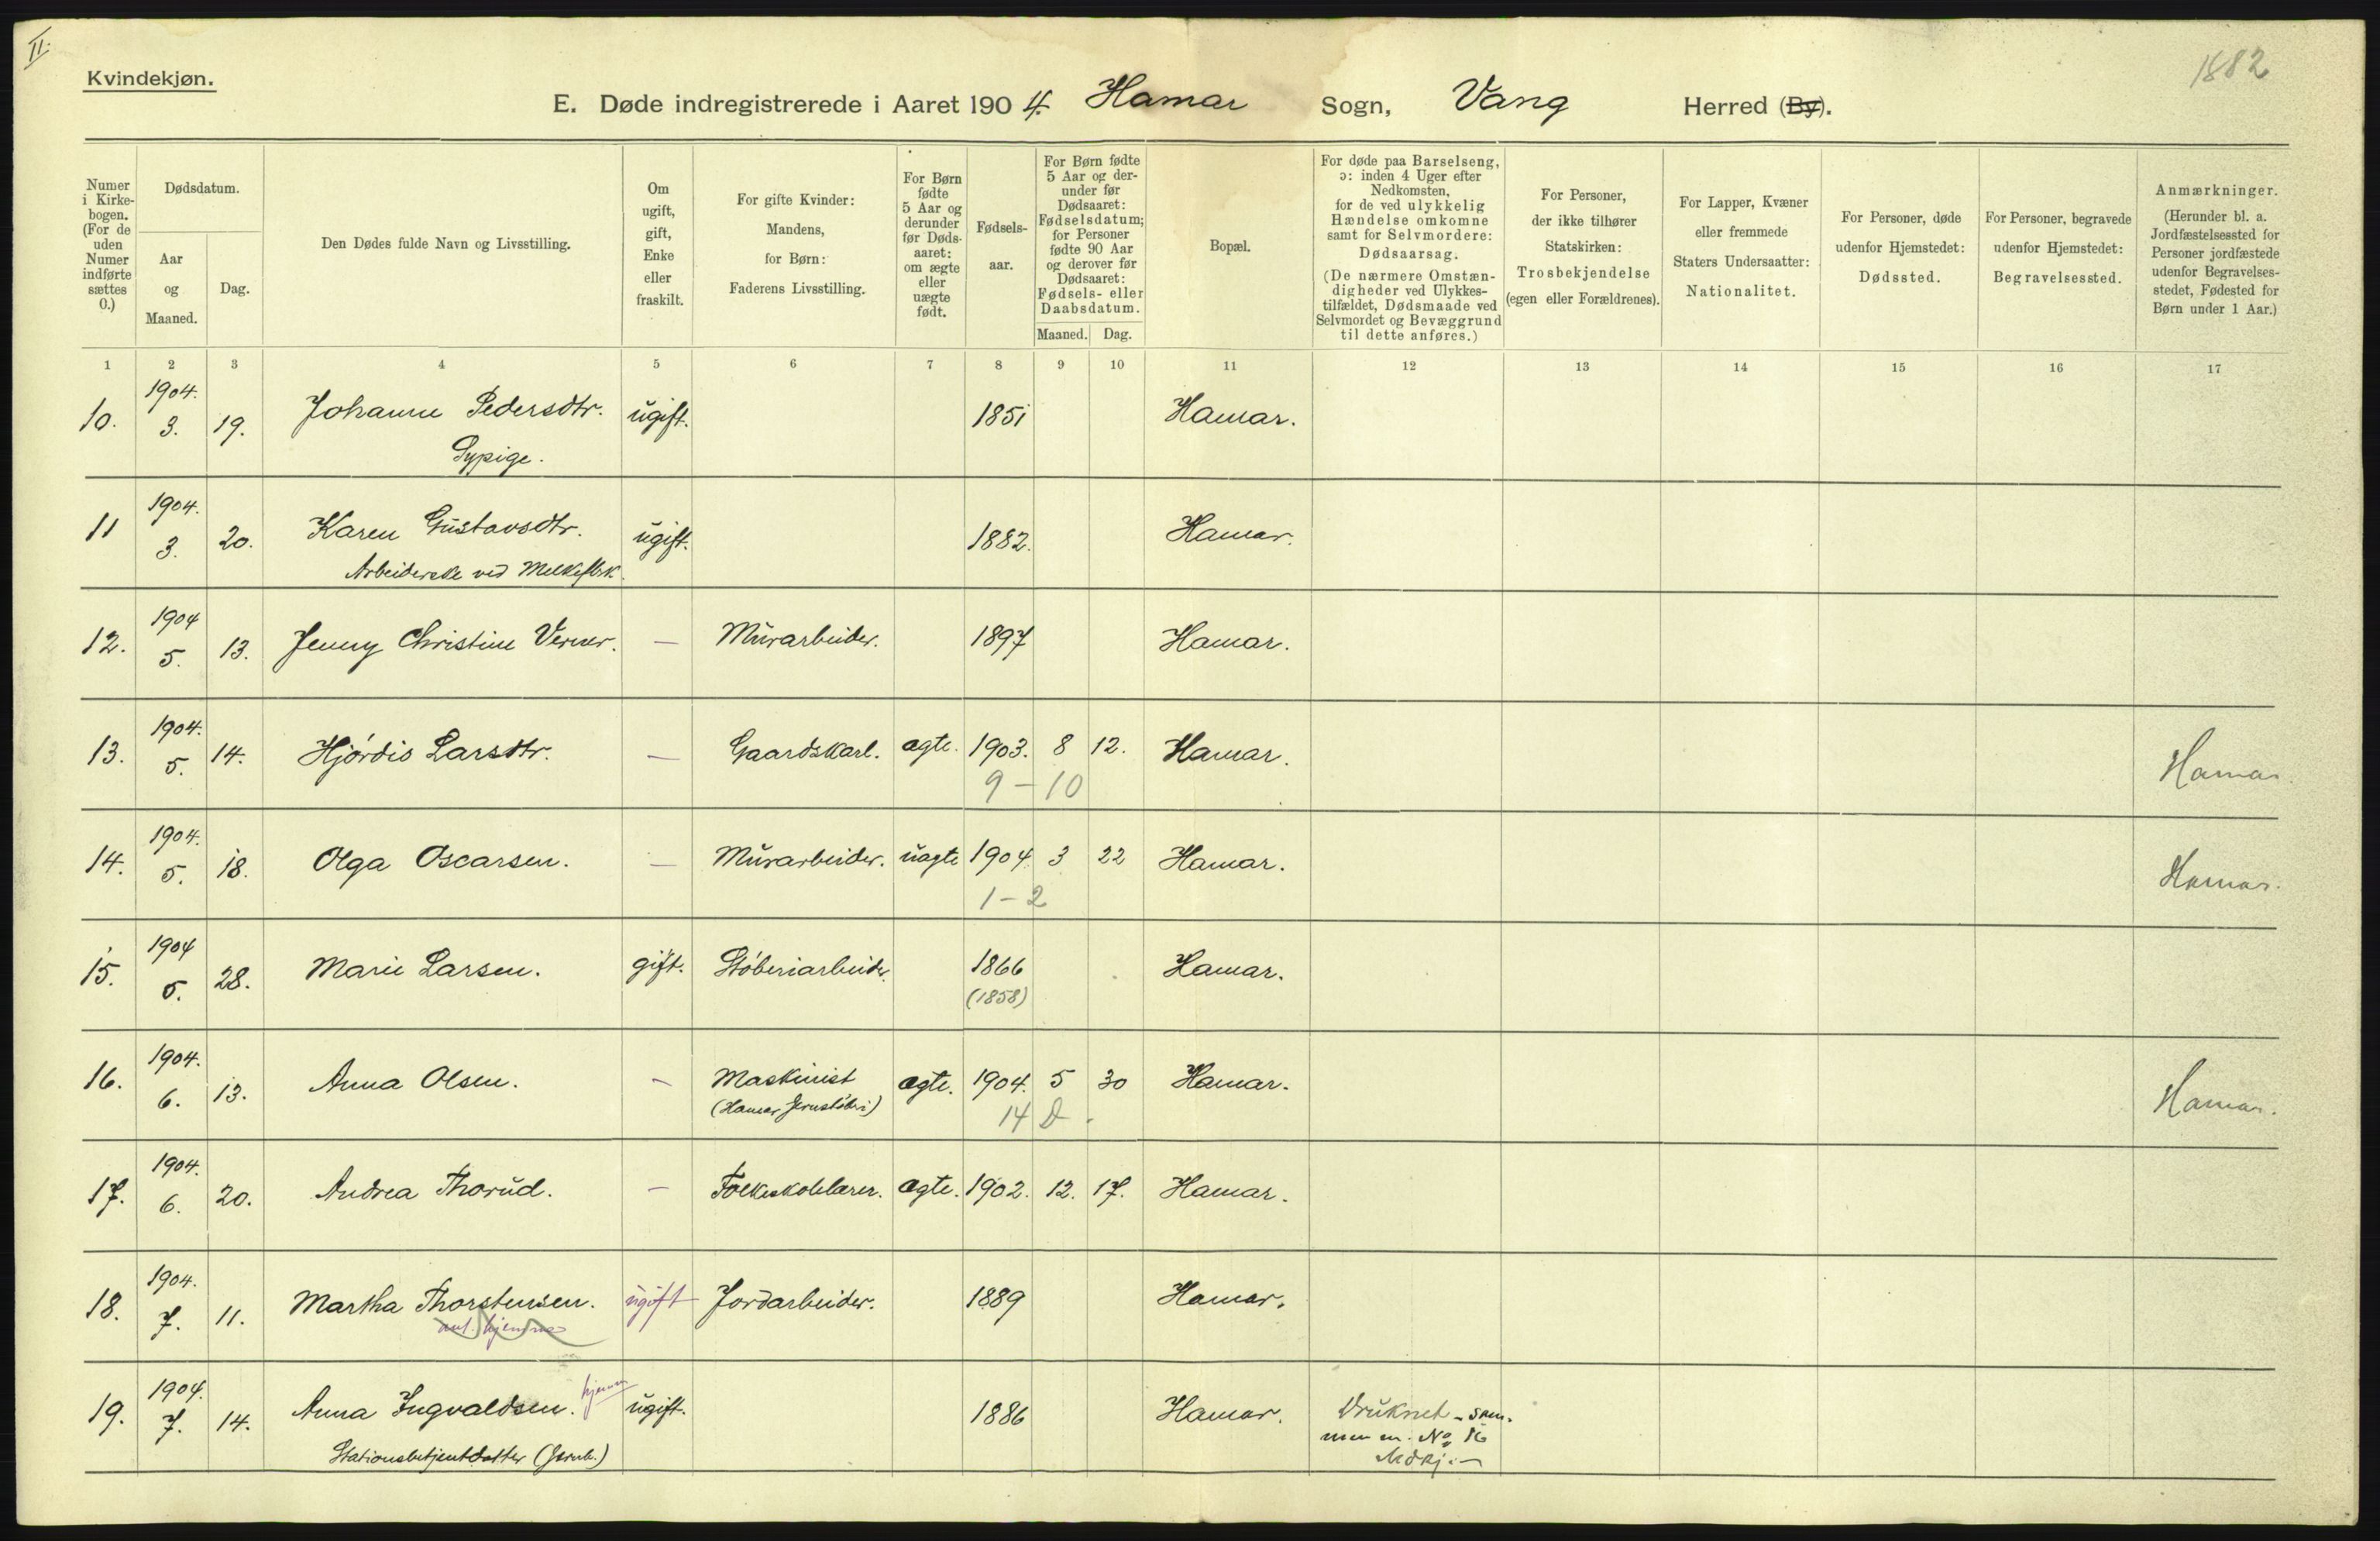 II.
1882
Kvindekjøn.
E. Døde indregistrerede i Aaret 1904. Hamar Sogn, Vang Herred (By).
Numer i Kirke-bogen. (For de uden Numer indførte sættes 0.)
Dødsdatum.
Aar og Maaned.
Dag.
Den Dødes fulde Navn og Livsstilling.
Om ugift, gift, Enke eller fraskilt.
For gifte Kvinder: Mandens, for Børn: Faderens Livsstilling.
For Børn fødte 5 Aar og derunder før Døds-aaret: om ægte eller uægte født.
Fødsels-aar.
For Børn fødte 5 Aar og der-under før Dødsaaret: Fødselsdatum; for Personer fødte 90 Aar og derover før Dødsaaret: Fødsels- eller Daabsdatum.
Maaned. Dag.
Bopæl.
For døde paa Barselseng, ɔ: inden 4 Uger efter Nedkomsten, for de ved ulykkelig Hændelse omkomne samt for Selvmordere: Dødsaarsag. (De nærmere Omstæn-digheder ved Ulykkes-tilfældet, Dødsmaade ved Selvmordet og Bevæggrund til dette anføres.)
For Personer, der ikke tilhører Statskirken: Trosbekjendelse (egen eller Forældrenes).
For Lapper, Kvæner eller fremmede Staters Undersaatter: Nationalitet.
For Personer, døde udenfor Hjemstedet: Dødssted.
For Personer, begravede udenfor Hjemstedet: Begravelsessted.
Anmærkninger. (Herunder bl. a. Jordfæstelsessted for Personer jordfæstede udenfor Begravelses-stedet, Fødested for Børn under 1 Aar.)
1 2 3 4 5 6 7 8 9 10 11 12 13 14 15 16 17
10. 1904. 3. 19. Johanne Pedersdtr. ugift. 1851 Hamar.
Sypige.
11 1904. 3. 20. Karen Gustavsdtr. ugift. 1882. Hamar.
Arbeiderske ved Melkefbrk.
12. 1904 5. 13. Jenny Christine Verner. — Murarbeider. 1897 Hamar.
13. 1904. 5. 14. Hjørdis Larsdtr. — Gaardskarl. ægte. 1903. 8 12. Hamar. Hamar.
9 – 10
14. 1904. 5. 18. Olga Oscarsen. — Murarbeider. uægte 1904 3 22 Hamar. Hamar.
1 – 2
15. 1904 5. 28. Marie Larsen. gift. Støberiarbeider. 1866 Hamar.
(1858)
16. 1904. 6. 13. Anna Olsen. – Maskinist ægte. 1904. 5 30 Hamar. Hamar.
(Hamar Jernstøberi)
14 D.
17. 1904. 6. 20. Andrea Thorud. – Folkeskolelærer. ægte. 1902. 12. 17. Hamar.
18. 1904. 7. 11. Martha Thorstensen. ugift Jordarbeider. 1889 Hamar.
ant. hjemme
19. 1904. 7. 14. Anna Ingvaldsen. hjemme ugift. 1886 Hamar. Druknet – sam-
Stationsbetjentdatter (Jernb.)
men m. No 16
Mdkj. –